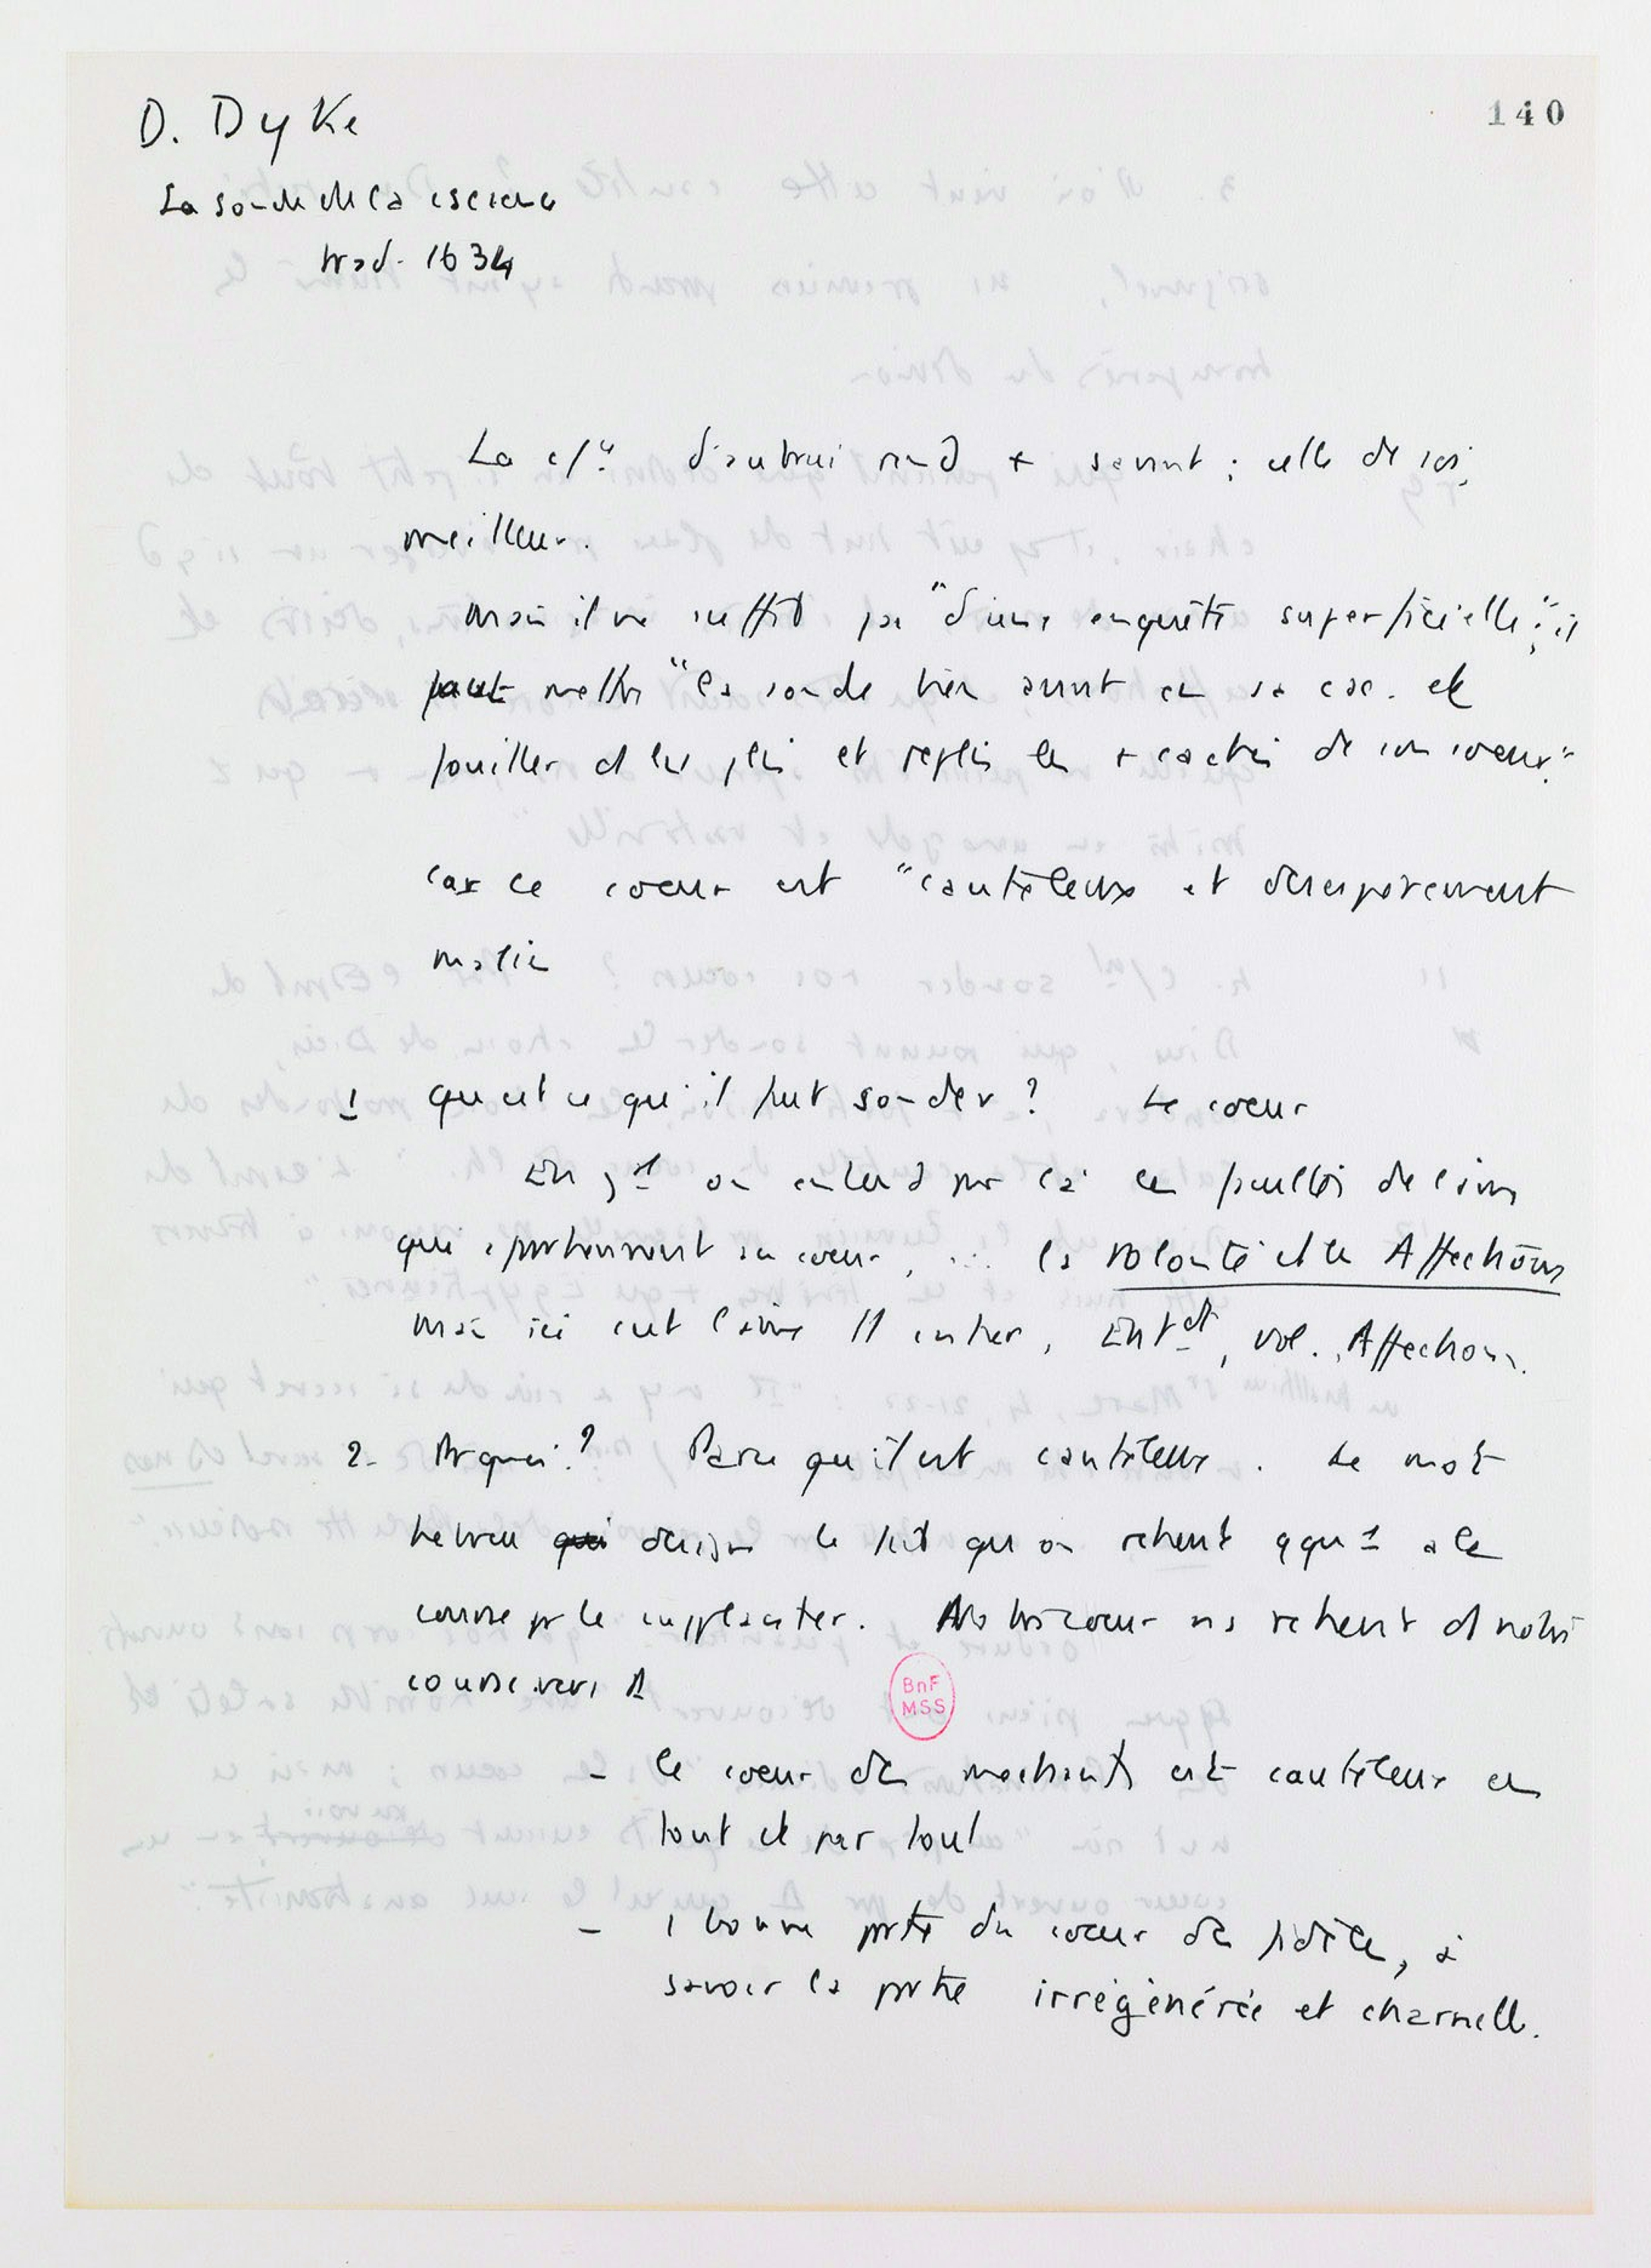 D. Dyke
140
La sonde de la cscience
trad. 1634
La c/ce d'autrui rend + savant ; celle de soi,
meilleur.
Mais il ne suffit pas "d'une enquête superficielle", il
faut mettre "la sonde bien avant en sa csc. et
fouiller ds les plis et replis les + cachés de son coeur".
Car ce coeur est "cauteleux et desesperement
malin
1 Qu'est ce qu'il faut sonder ? Le coeur
En gal on entend par là les facultés de l'âme
qui appartiennent au coeur, ... la volonté et les Affections
mais ici c'est l'âme tt entier, Entdt, vol., Affections.
2- Pr quoi ? Parce qu'il est cauteleux. Le mot
hebreu qui designe le fait qu'on retient qqu'1 à la
course pr le supplanter. Notre coeur ns retient ds notre
course vers Δ
BnF
MSS
- le coeur des mechants est cauteleux en
tout et par tout
- 1 bonne partie du coeur des fidèles, à
savoir la partie irrégénérée et charnelle.